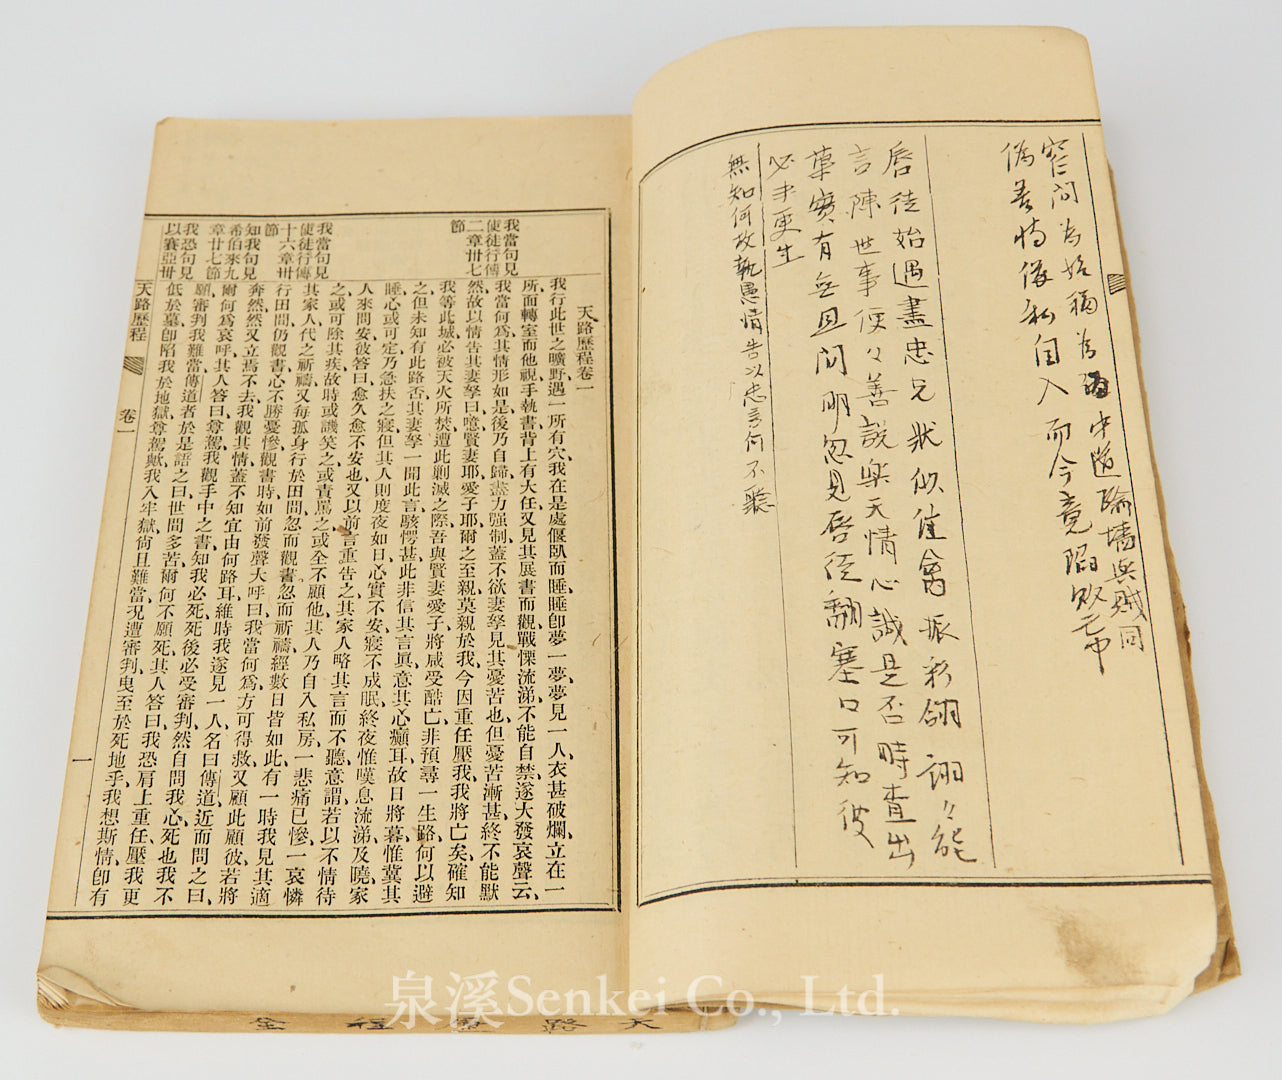 窄門為始稱為中隨踰墻與賊同
偽善恃儀私自入而今竟陷敗亡中
唇徒始遇盡忠兄狀似隹禽振彩翎詡々能
言陳世事便々善說樂天情心誠是否時查出
菓實有無且問明忽見唇徒翻塞口可知彼
必未更生
無知何故執愚情告以忠言何不聽
天路歷程卷一
我行此世之曠野、遇一所有穴、我在是處偃臥而睡、睡卽夢一夢、夢見一人、衣甚破爛、立在一
所、面轉室而他視、手執書、背上有大任、又見其展書而觀、戰慄流涕、不能自禁、遂大發哀聲云、
我當何爲、其情形如是、後乃自歸、盡力强制、蓋不欲妻孥見其憂苦也、但憂苦漸甚、終不能默
然、故以情告其妻孥曰、噫、賢妻耶、愛子耶、爾之至親、莫親於我、今因重任壓我、我將亡矣、確知
我等此城、必被天火所焚、遭此剿滅之際、吾與賢妻愛子、將咸受酷亡、非預尋一生路、何以避
之、但未知有此路否、其妻孥一聞此言、駭愕甚、此非信其言眞、意其心癲耳、故日將暮、惟冀其
睡、心或可定、乃急扶之寢、但其人則度夜如日、心實不安、寢不成眠、終夜惟嘆息流涕、及曉、家
人來問安、彼答曰、愈久愈不安也、又以前言重告之、其家人略其言而不聽、意謂若以不情待
之、或可除其疾、故時或譏笑之、或責罵之、或全不顧他、其人乃自入私房、一悲痛已慘、一哀憐
其家人、代之祈禱、又每孤身行於田間、忽而觀書、忽而祈禱、經數日皆如此、有一時我見其適
行田間、仍觀書、心不勝憂慘、觀書時、如前發聲大呼曰、我當何爲、方可得救、又顧此顧彼、若將
奔然、然又立焉不去、我觀其情、蓋不知宜由何路耳、維時我遂見一人、名曰傳道、近而問之曰、
爾何爲哀呼、其人答曰、尊駕、我觀手中之書、知我必死、死後必受審判、然自問我心、死也我不
願、審判我難當、傳道者於是語之曰、世間多苦、爾何不願死、其人答曰、我恐肩上重任、壓我更
低於墓、卽陷我於地獄、尊駕歟、我入牢獄、尙且難當、况遭審判、曳至於死地乎、我想斯情、卽有
我當句見
使徒行傳
二章卅七
節
我當句見
使徒行傳
十六章卅
節
知我句見
希伯來九
章廿七節
我恐句見
以賽亞卅
天路歷程
卷一
一
全程歷路天
泉溪Senkei Co., Ltd.